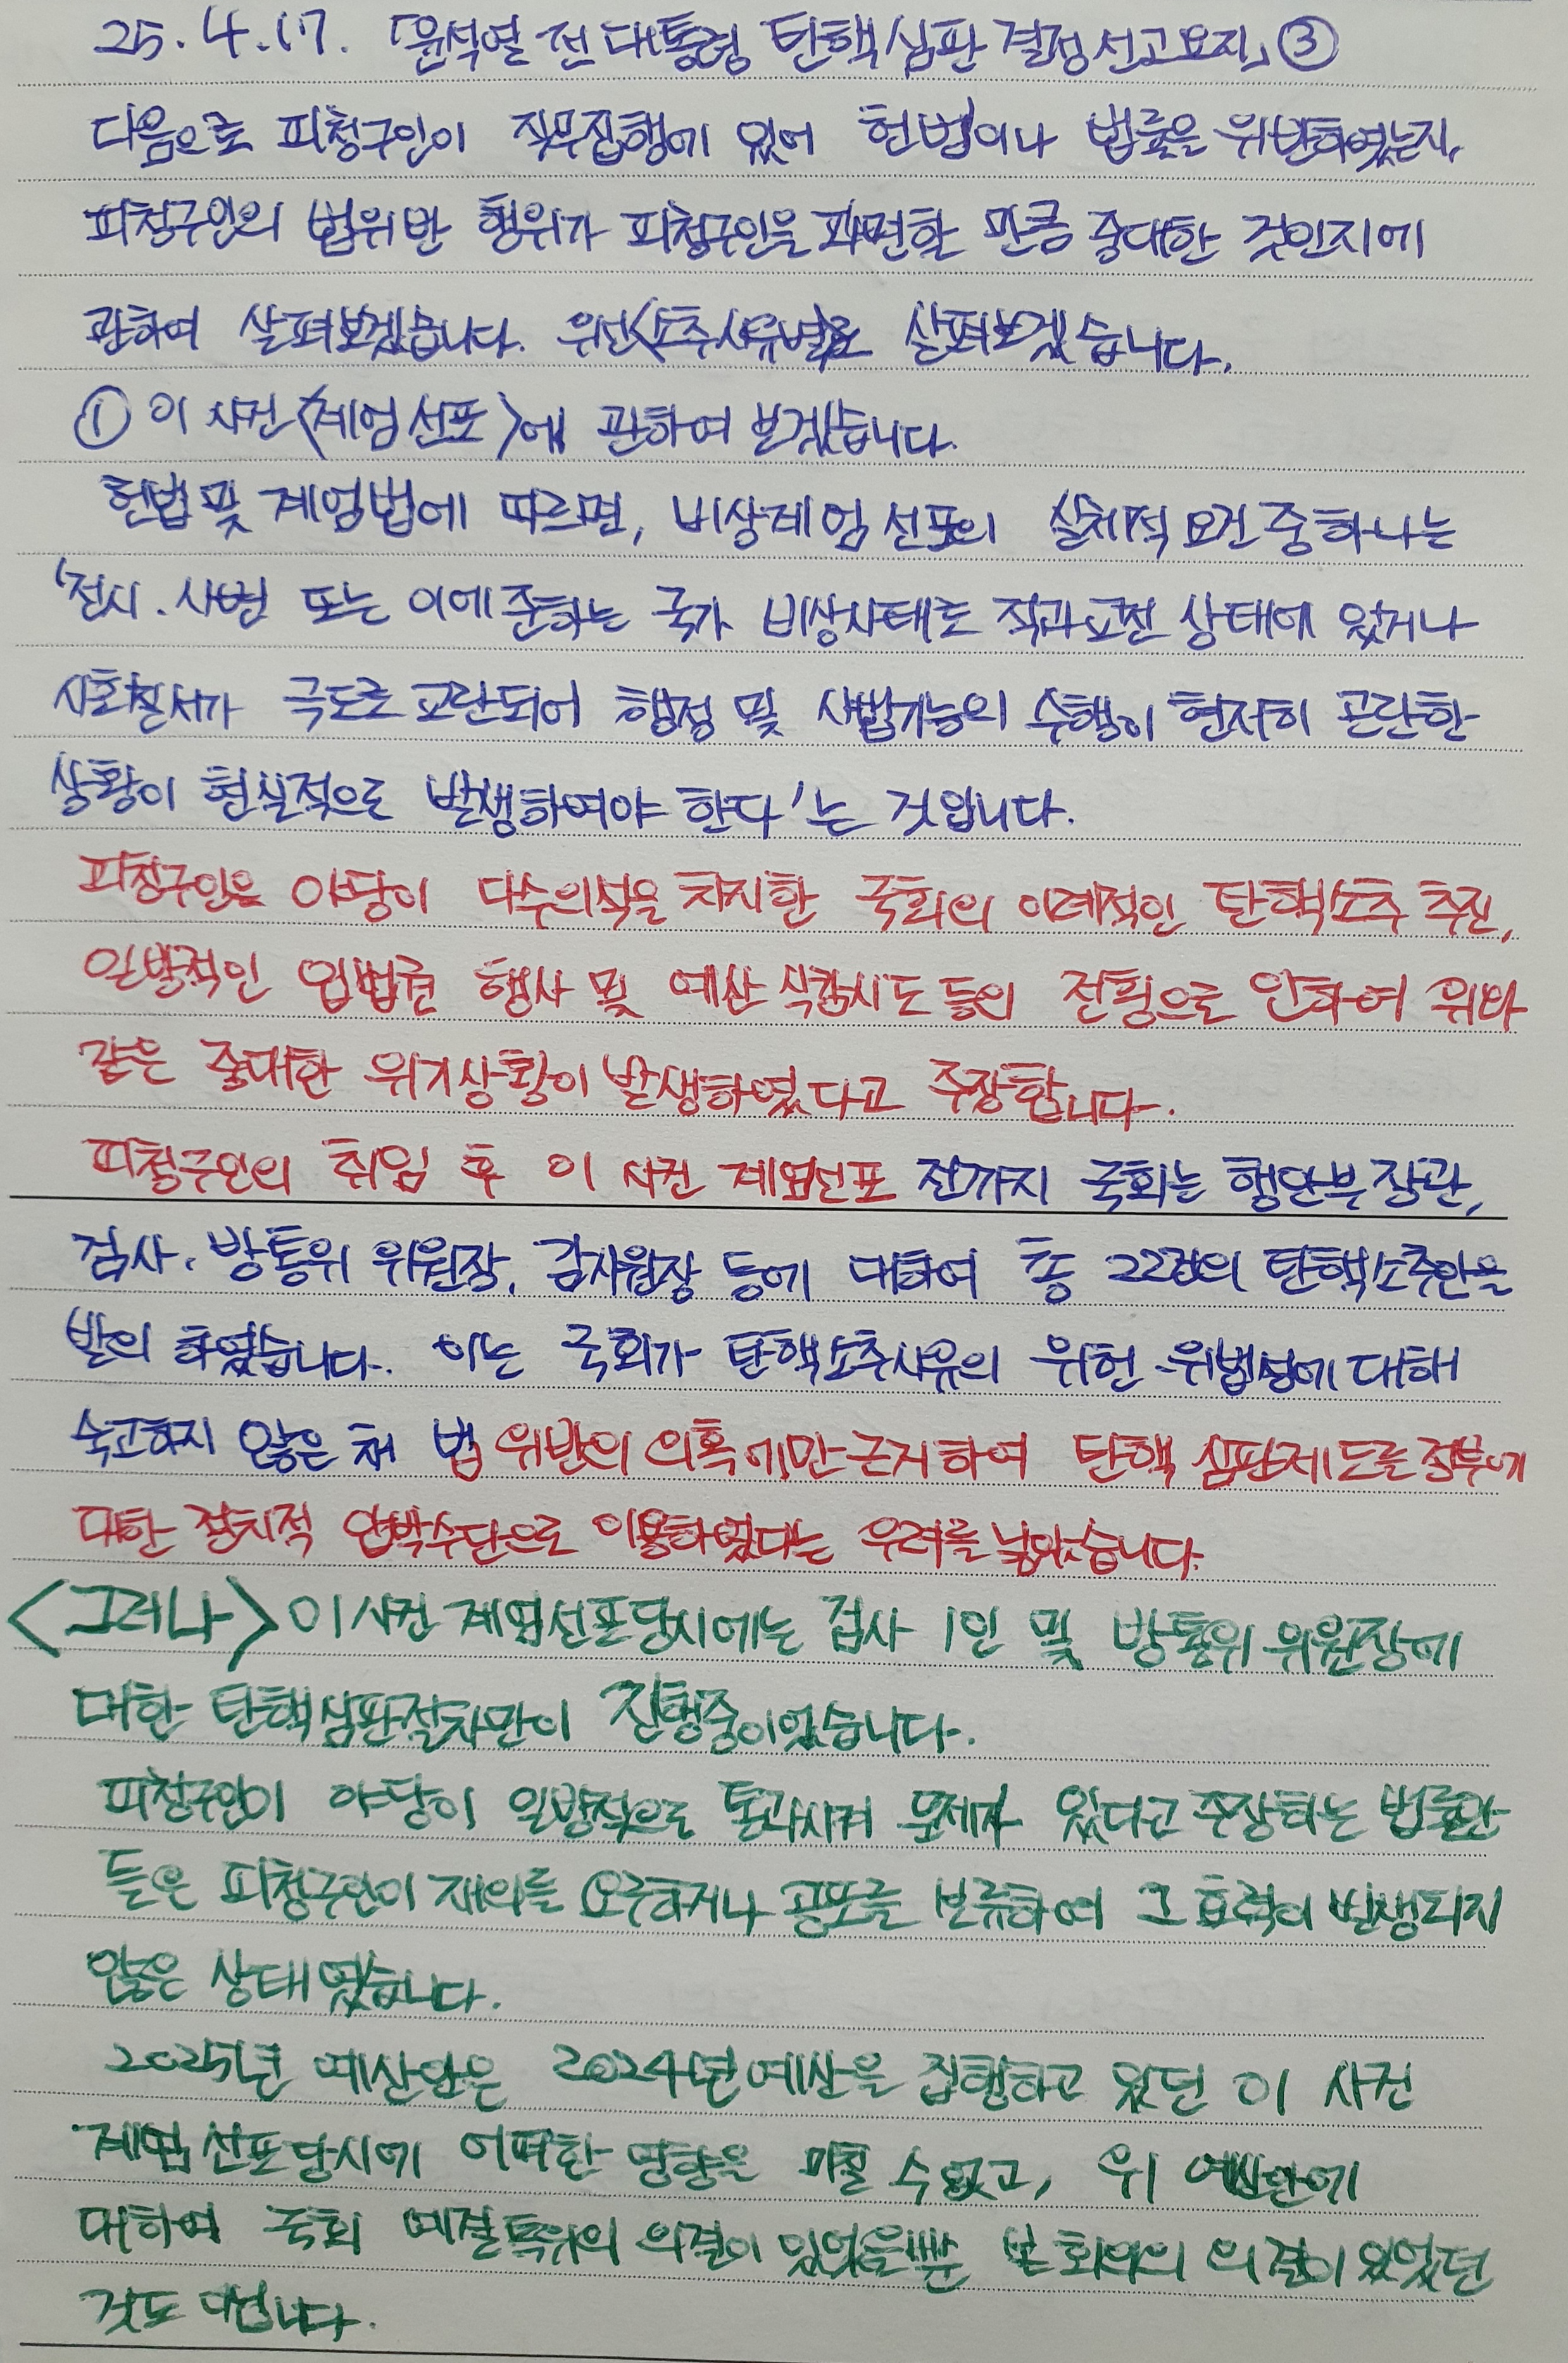 25.4.17. 「윤석열 전 대통령 탄핵심판 결정선고요지」 ③
다음으로 피청구인이 직무집행에 있어 헌법이나 법률을 위반하였는지,
피청구인의 법위반 행위가 피청구인을 파면할 만큼 중대한 것인지에
관하여 살펴보겠습니다. 우선 <소추사유별>로 살펴보겠습니다.
① 이 사건 <계엄선포>에 관하여 보겠습니다.
헌법 및 계엄법에 따르면, 비상계엄 선포의 실체적 요건 중 하나는
'전시·사변 또는 이에 준하는 국가 비상사태로 적과 교전 상태에 있거나
사회질서가 극도로 교란되어 행정 및 사법기능의 수행이 현저히 곤란한
상황이 현실적으로 발생하여야 한다'는 것입니다.
피청구인은 야당이 다수의석을 차지한 국회의 이례적인 탄핵소추 추진,
일방적인 입법권 행사 및 예산 삭감시도 등의 전횡으로 인하여 위와
같은 중대한 위기상황이 발생하였다고 주장합니다.
피청구인의 취임 후 이 사건 계엄선포 전까지 국회는 행안부장관,
검사, 방통위 위원장, 감사원장 등에 대하여 총 22건의 탄핵소추안을
발의 하였습니다. 이는 국회가 탄핵소추사유의 위헌·위법성에 대해
숙고하지 않은 채 법 위반의 의혹에만 근거하여 탄핵심판제도를 정부에
대한 정치적 압박수단으로 이용하였다는 우려를 낳았습니다.
<그러나> 이 사건 계엄선포 당시에는 검사 1인 및 방통위 위원장에
대한 탄핵심판절차만이 진행중이었습니다.
피청구인이 야당이 일방적으로 통과시켜 문제가 있다고 주장하는 법률안
들은 피청구인이 재의를 요구하거나 공포를 보류하여 그 효력이 발생되지
않은 상태였습니다.
2025년 예산안은 2024년 예산을 집행하고 있던 이 사건
계엄 선포 당시에 어떠한 영향을 미칠 수 없고, 위 예산안에
대하여 국회 예결특위의 의결이 있었을 뿐 본회의의 의결이 있었던
것도 아닙니다.